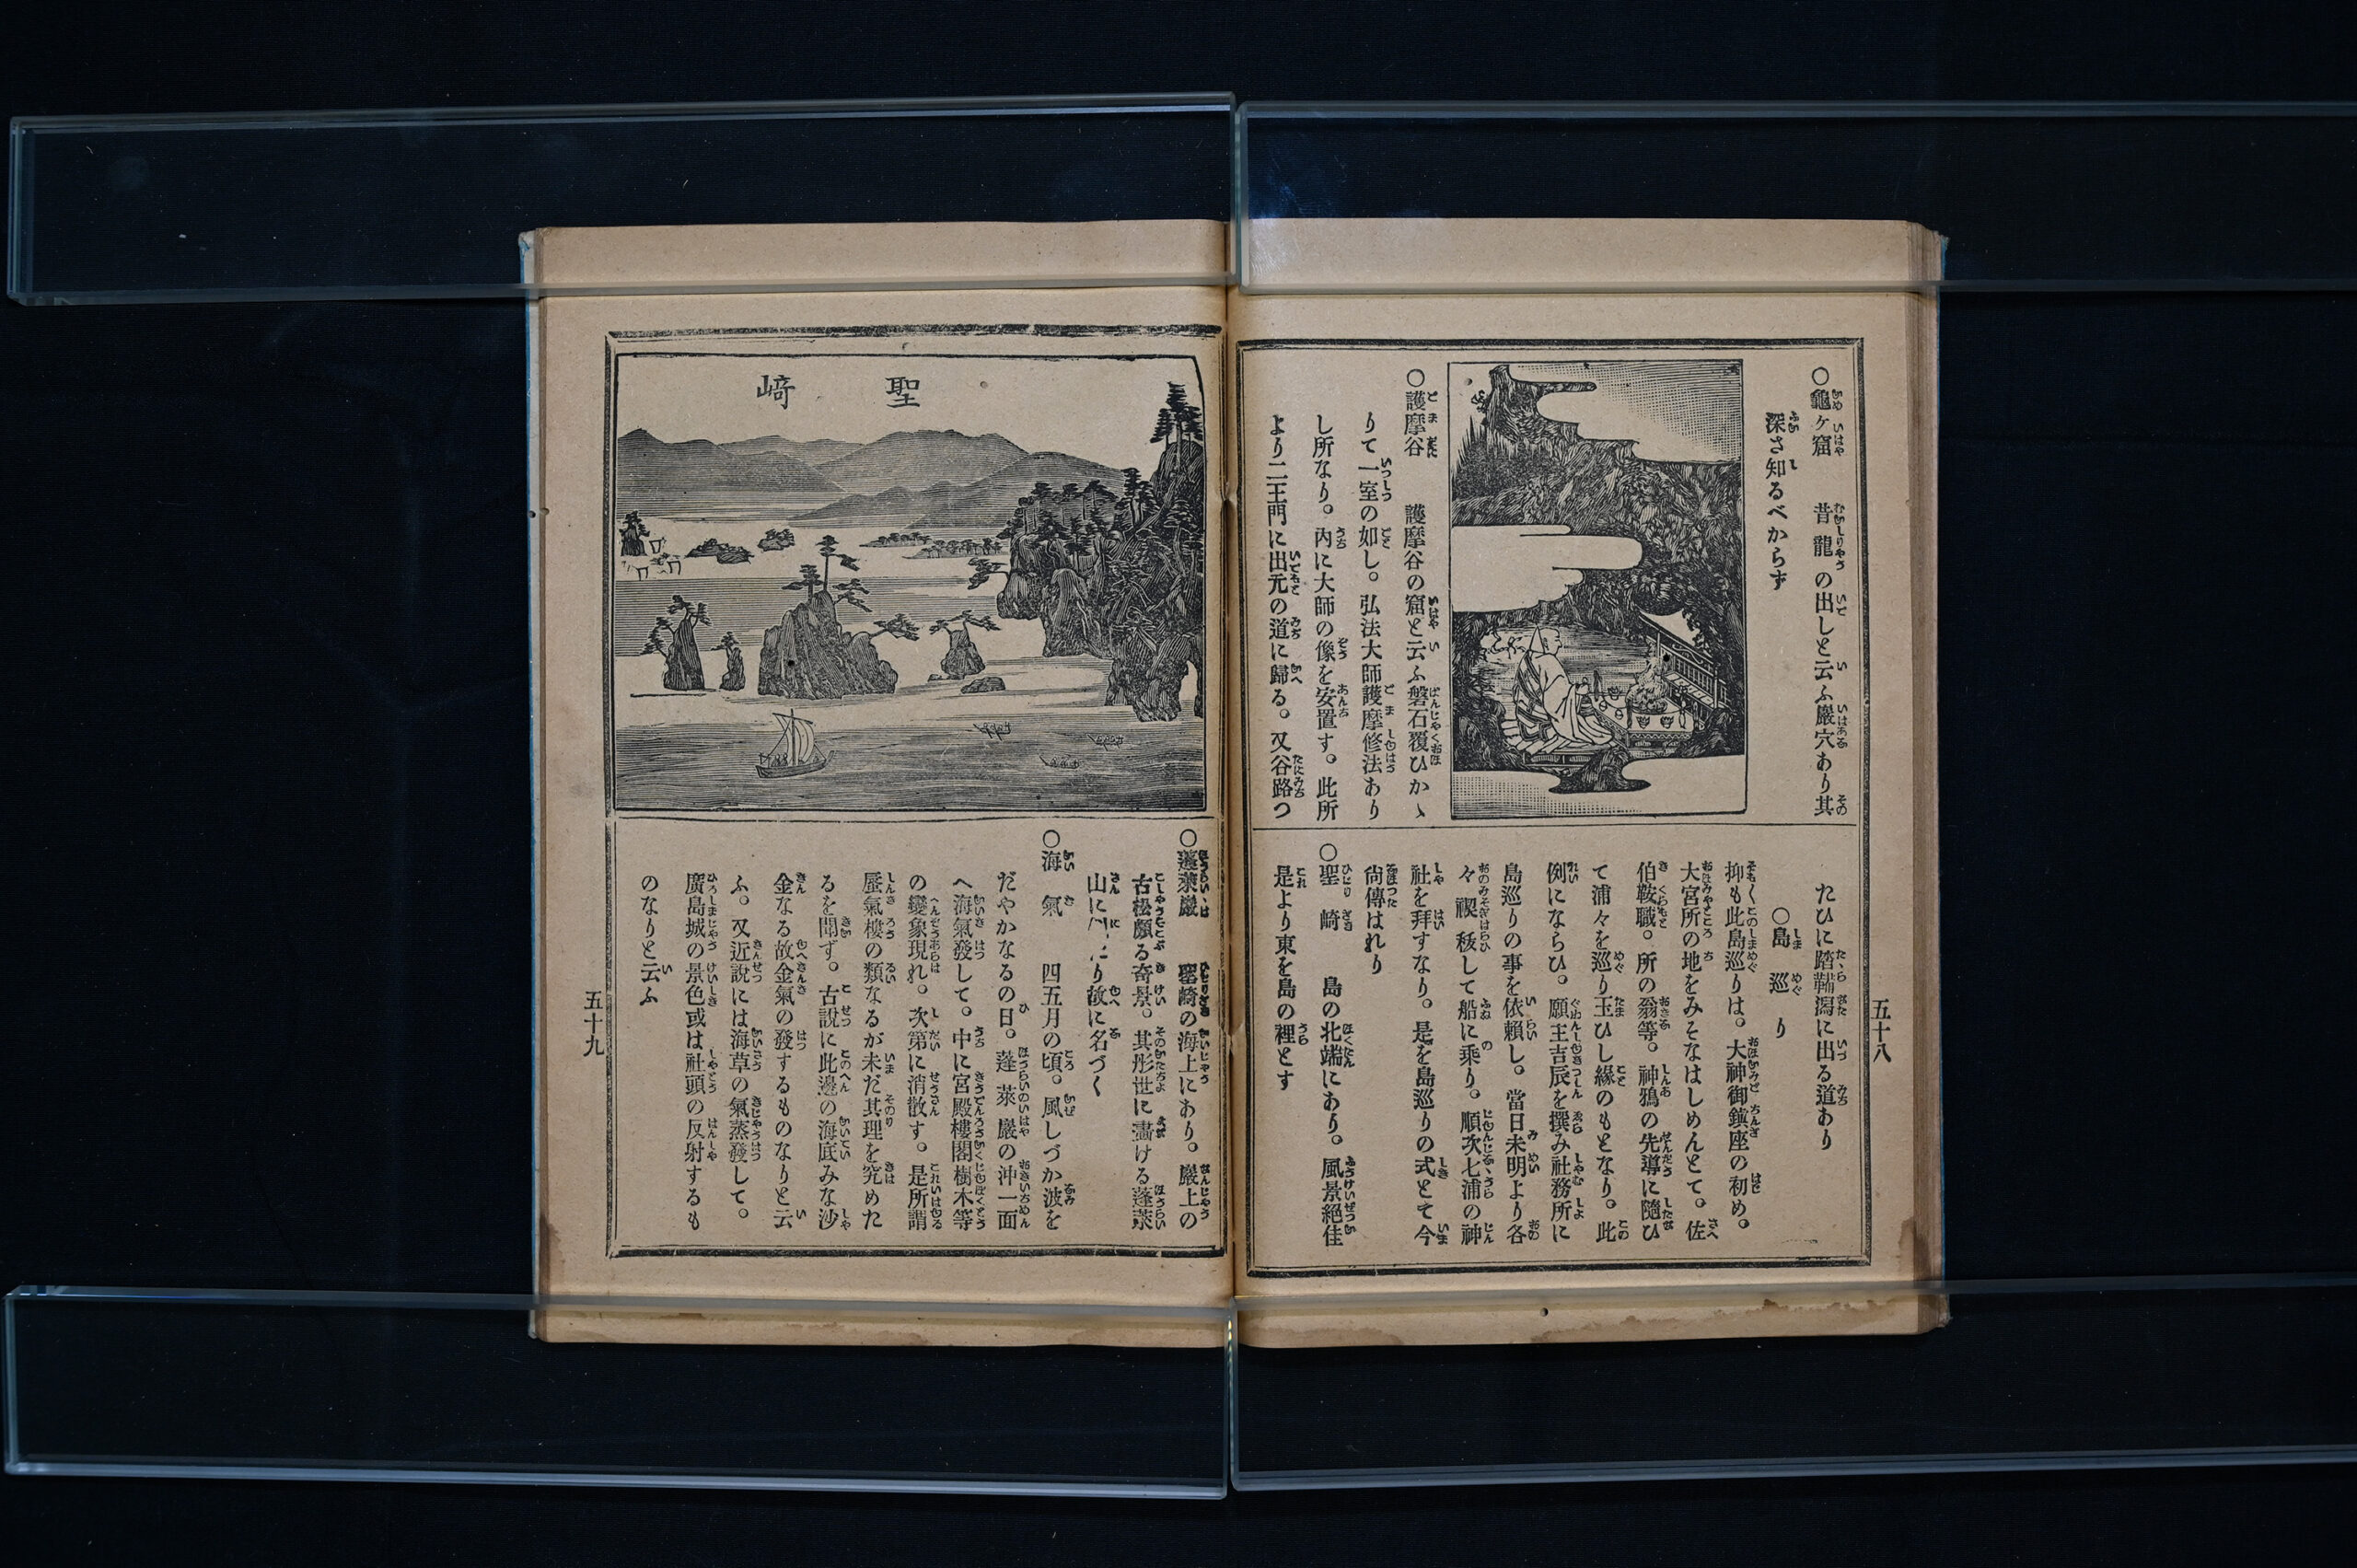 五十八
○龜ヶ窟　昔龍の出しと云ふ巖穴あり其
深さ知るべからず
○護摩谷　護摩谷の窟と云ふ磐石覆ひかゝ
りて一室の如し。弘法大師護摩修法あり
し所なり。內に大師の像を安置す。此所
より二王門に出元の道に歸る。又谷路つ
たひに踏鞴潟に出る道あり
○島巡り
抑も此島巡りは。大神御鎭座の初め。
大宮所の地をみそなはしめんとて。佐
伯鞍職。所の翁等。神鴉の先導に隨ひ
て浦々を巡り玉ひし緣のもとなり。此
例にならひ。願主吉辰を撰み社務所に
島巡りの事を依賴し。當日未明より各
々禊秡して船に乘り。順次七浦の神
社を拜すなり。是を島巡りの式とて今
尙傳はれり
○聖崎　島の北端にあり。風景絕佳
是より東を島の裡とす
聖﨑
○蓬萊巖　聖崎の海上にあり。巖上の
古松頗る奇景。其形世に畵ける蓬萊
山に り故に名づく
○海氣　四五月の頃。風しづか波を
だやかなるの日。蓬萊巖の沖一面
へ海氣發して。中に宮殿樓閣樹木等
の變象現れ。次第に消散す。是所謂
蜃氣樓の類なるが未だ其理を究めた
るを聞ず。古說に此邊の海底みな沙
金なる故金氣の發するものなりと云
ふ。又近說には海草の氣蒸發して。
廣島城の景色或は社頭の反射するも
のなりと云ふ
五十九